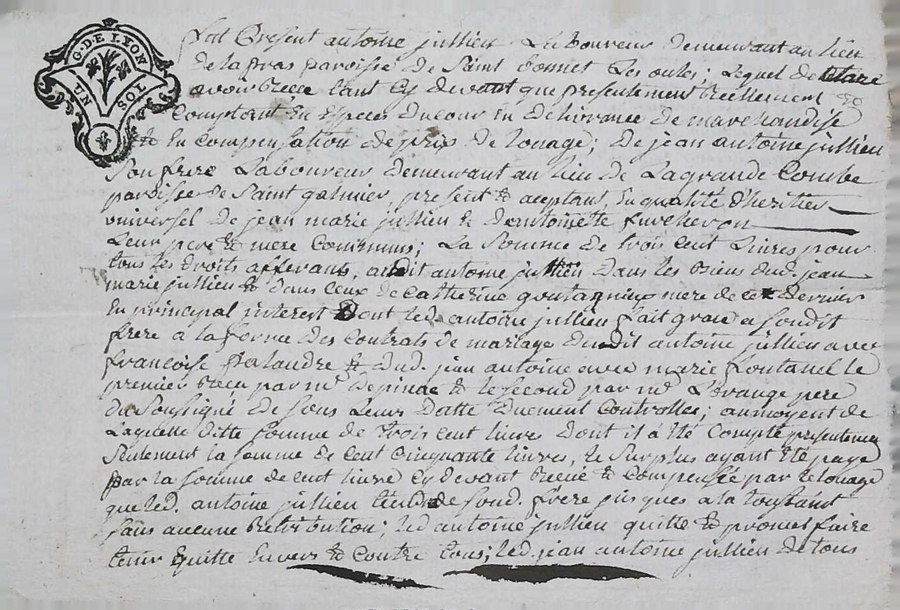 G. D E LYON
UN SOL
fut Present antoine jullien Laboureur demeurant au lieu
de la pras paroisse de Saint bonnet Les oules; Lequel declare
avoir Recu tant Cy devant que presentement Reellement &
Comptant En Espece du cour En delivrance de marchandise
& En Compensation de prix de louage; de jean antoine jullien
Son frere Laboureur demeurant au lieu de La grande Combe
paroisse de Saint galmier, present & aceptant, En qualité d'heritier
universel de jean marie jullien & d'antoinette
Leur pere & mere Communs; La Somme de trois cent Livres pour
tous les droits afferants, audit antoine jullien dans les biens dud. jean
marie jullien & dans Ceux de Catherine mere de ce dernier
En principal interest dont led. antoine jullien fait grace a Sondit
frere a la forme des Contrats de mariage dudit antoine jullien avec
francoise & dud. jean antoine avec marie fontanel le
premier Recu par me depinac & le Second par me L'Orange pere
du Soussigné de Sous Leurs datte duement Controllés; au moyent de
Laquelle ditte Somme de trois cent livres dont il a été Compté presentement
Seulement la Somme de Cent Cinquante livres, le Surplus ayant été payé
par la Somme de Cent livre Cy devant Recue & Compensée par le louage
que led. antoine jullien tient de Soud. frere jusques a la toussaint
Sans aucune Retribution; led antoine jullien quitte & promet faire
tenir Equitte Envers & Contre tous; led. jean antoine jullien de tous